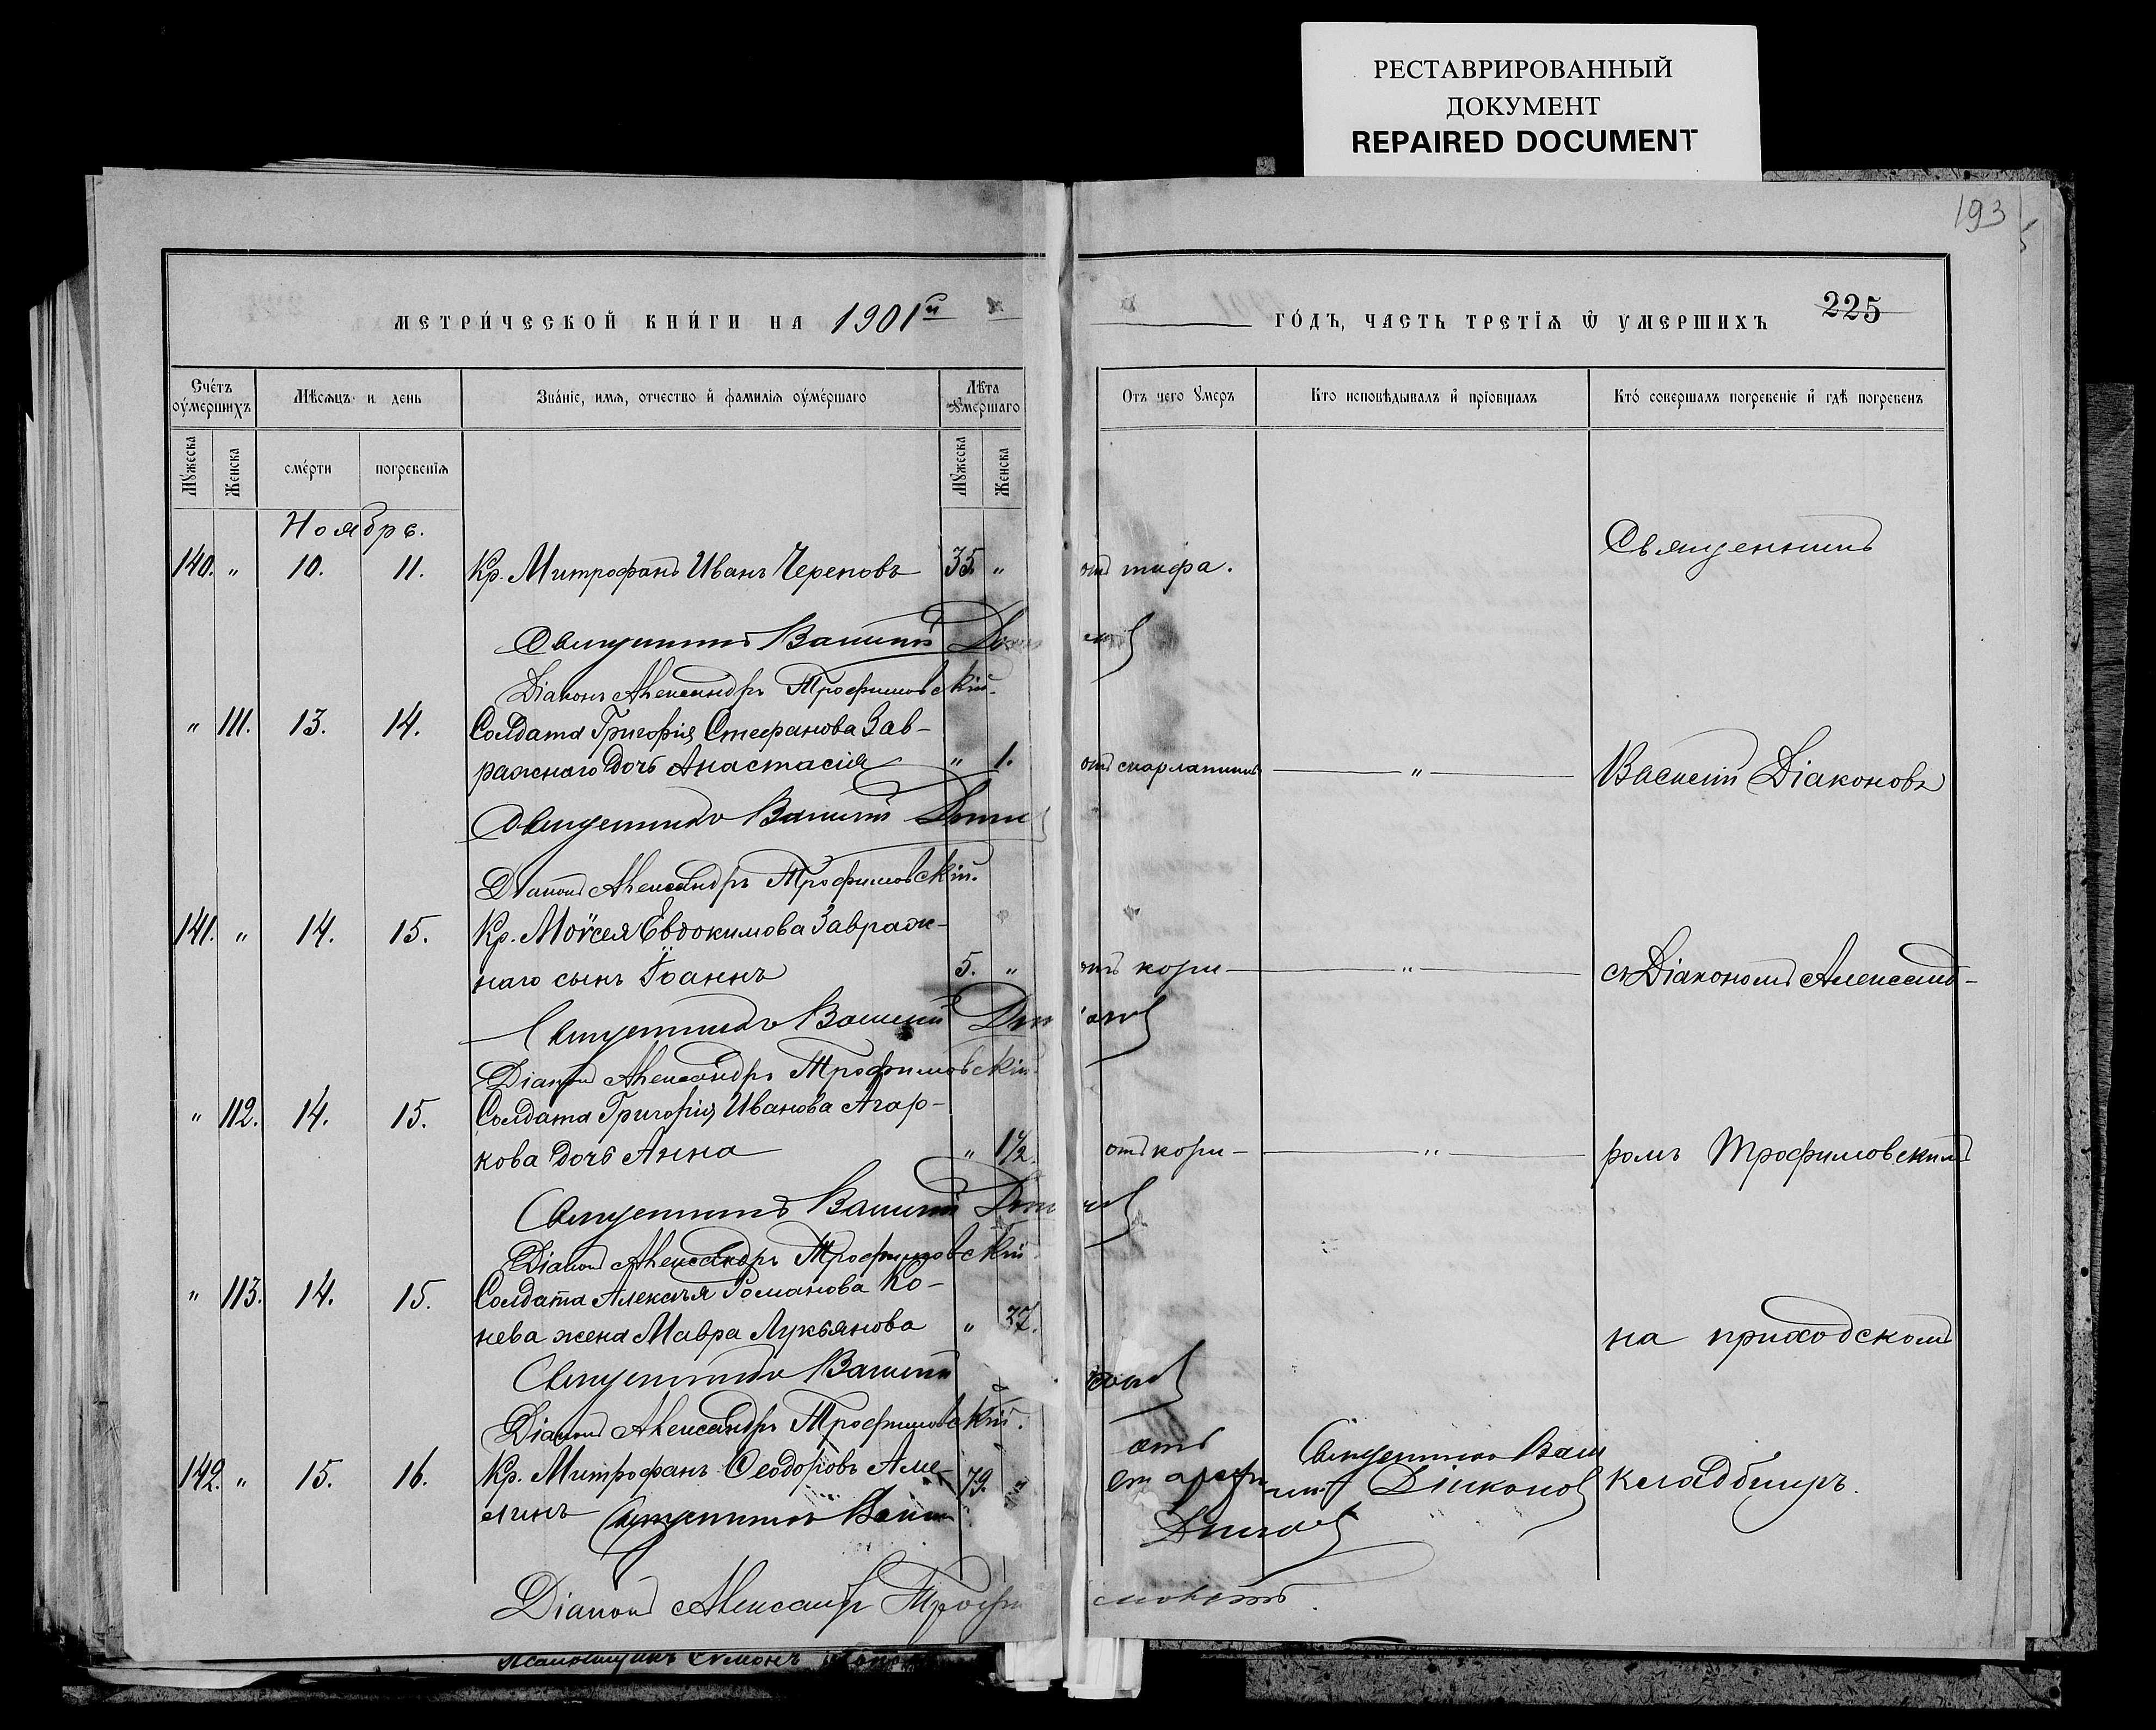 РЕСТАВРИРОВАННЫЙ
ДОКУМЕНТ
REPAIRED DOCUMENT
193
МЕТРИ́ЧЕСКОЙ КНИ́ГИ НА 1901й
ГО́ДЪ, ЧАСТЬ ТРЕТІѦ Ѿ УМЕРШИХЪ 225
Сче́тъ оу҆ме́ршихъ
Мѣсѧцъ и день
Зва́нїе, имѧ, отчество и҆ фамилїѧ оу҆ме́ршаго
Лѣта Ꙋмершаго
Отъ чего Ꙋмеръ
Кто исповѣдывалъ и҆ прїовщалъ
Кто́ совершалъ погребенїе и҆ гдѣ погребенъ
Мꙋжеска
Женска
сме́рти
погребенїѧ
Мꙋжеска
Женска
Ноябрь.
140. " 10. 11. Кр. Митрофанъ Иванъ Череповъ 35. " отъ тифа.
Священникъ
Священникъ Василій
Діаконъ Александръ Трофимовскій.
" 111. 13. 14. Солдата Григорія Стефанова Зав-
ражнаго дочь Анастасія " 1. отъ скарлатины " Василій Діаконовъ
Священникъ Василій
Діаконъ Александръ Трофимовскій.
141. " 14. 15. Кр. Моѵсея Евдокимова Завраж-
наго сынъ Іоаннъ 5. " отъ кори " съ Діакономъ Александ-
Священникъ Василій
Діаконъ Александръ Трофимовскій
" 112. 14. 15. Солдата Григорія Иванова Агар-
кова дочь Анна " 1½. отъ кори " ромъ Трофимовскимъ
Священникъ Василій
Діаконъ Александръ Трофимовскій
" 113. 14. 15. Солдата Алексѣя Романова Ко-
нева жена Мавра Лукьянова " 37.
на приходскомъ
Священникъ Василій
Діаконъ Александръ Трофимовскій.
142. " 15. 16. Кр. Митрофанъ Ѳеодоровъ Аме- 79. " отъ Священникъ Васи
лій Діаконовъ кладбищѣ.
линъ Священникъ Васи
Діаконъ Александръ Трофимовскій.
Псаломщикъ Симонъ